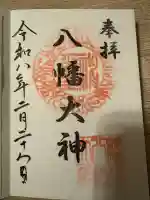 奉拝
八幡大神
令和八年二月二十八日